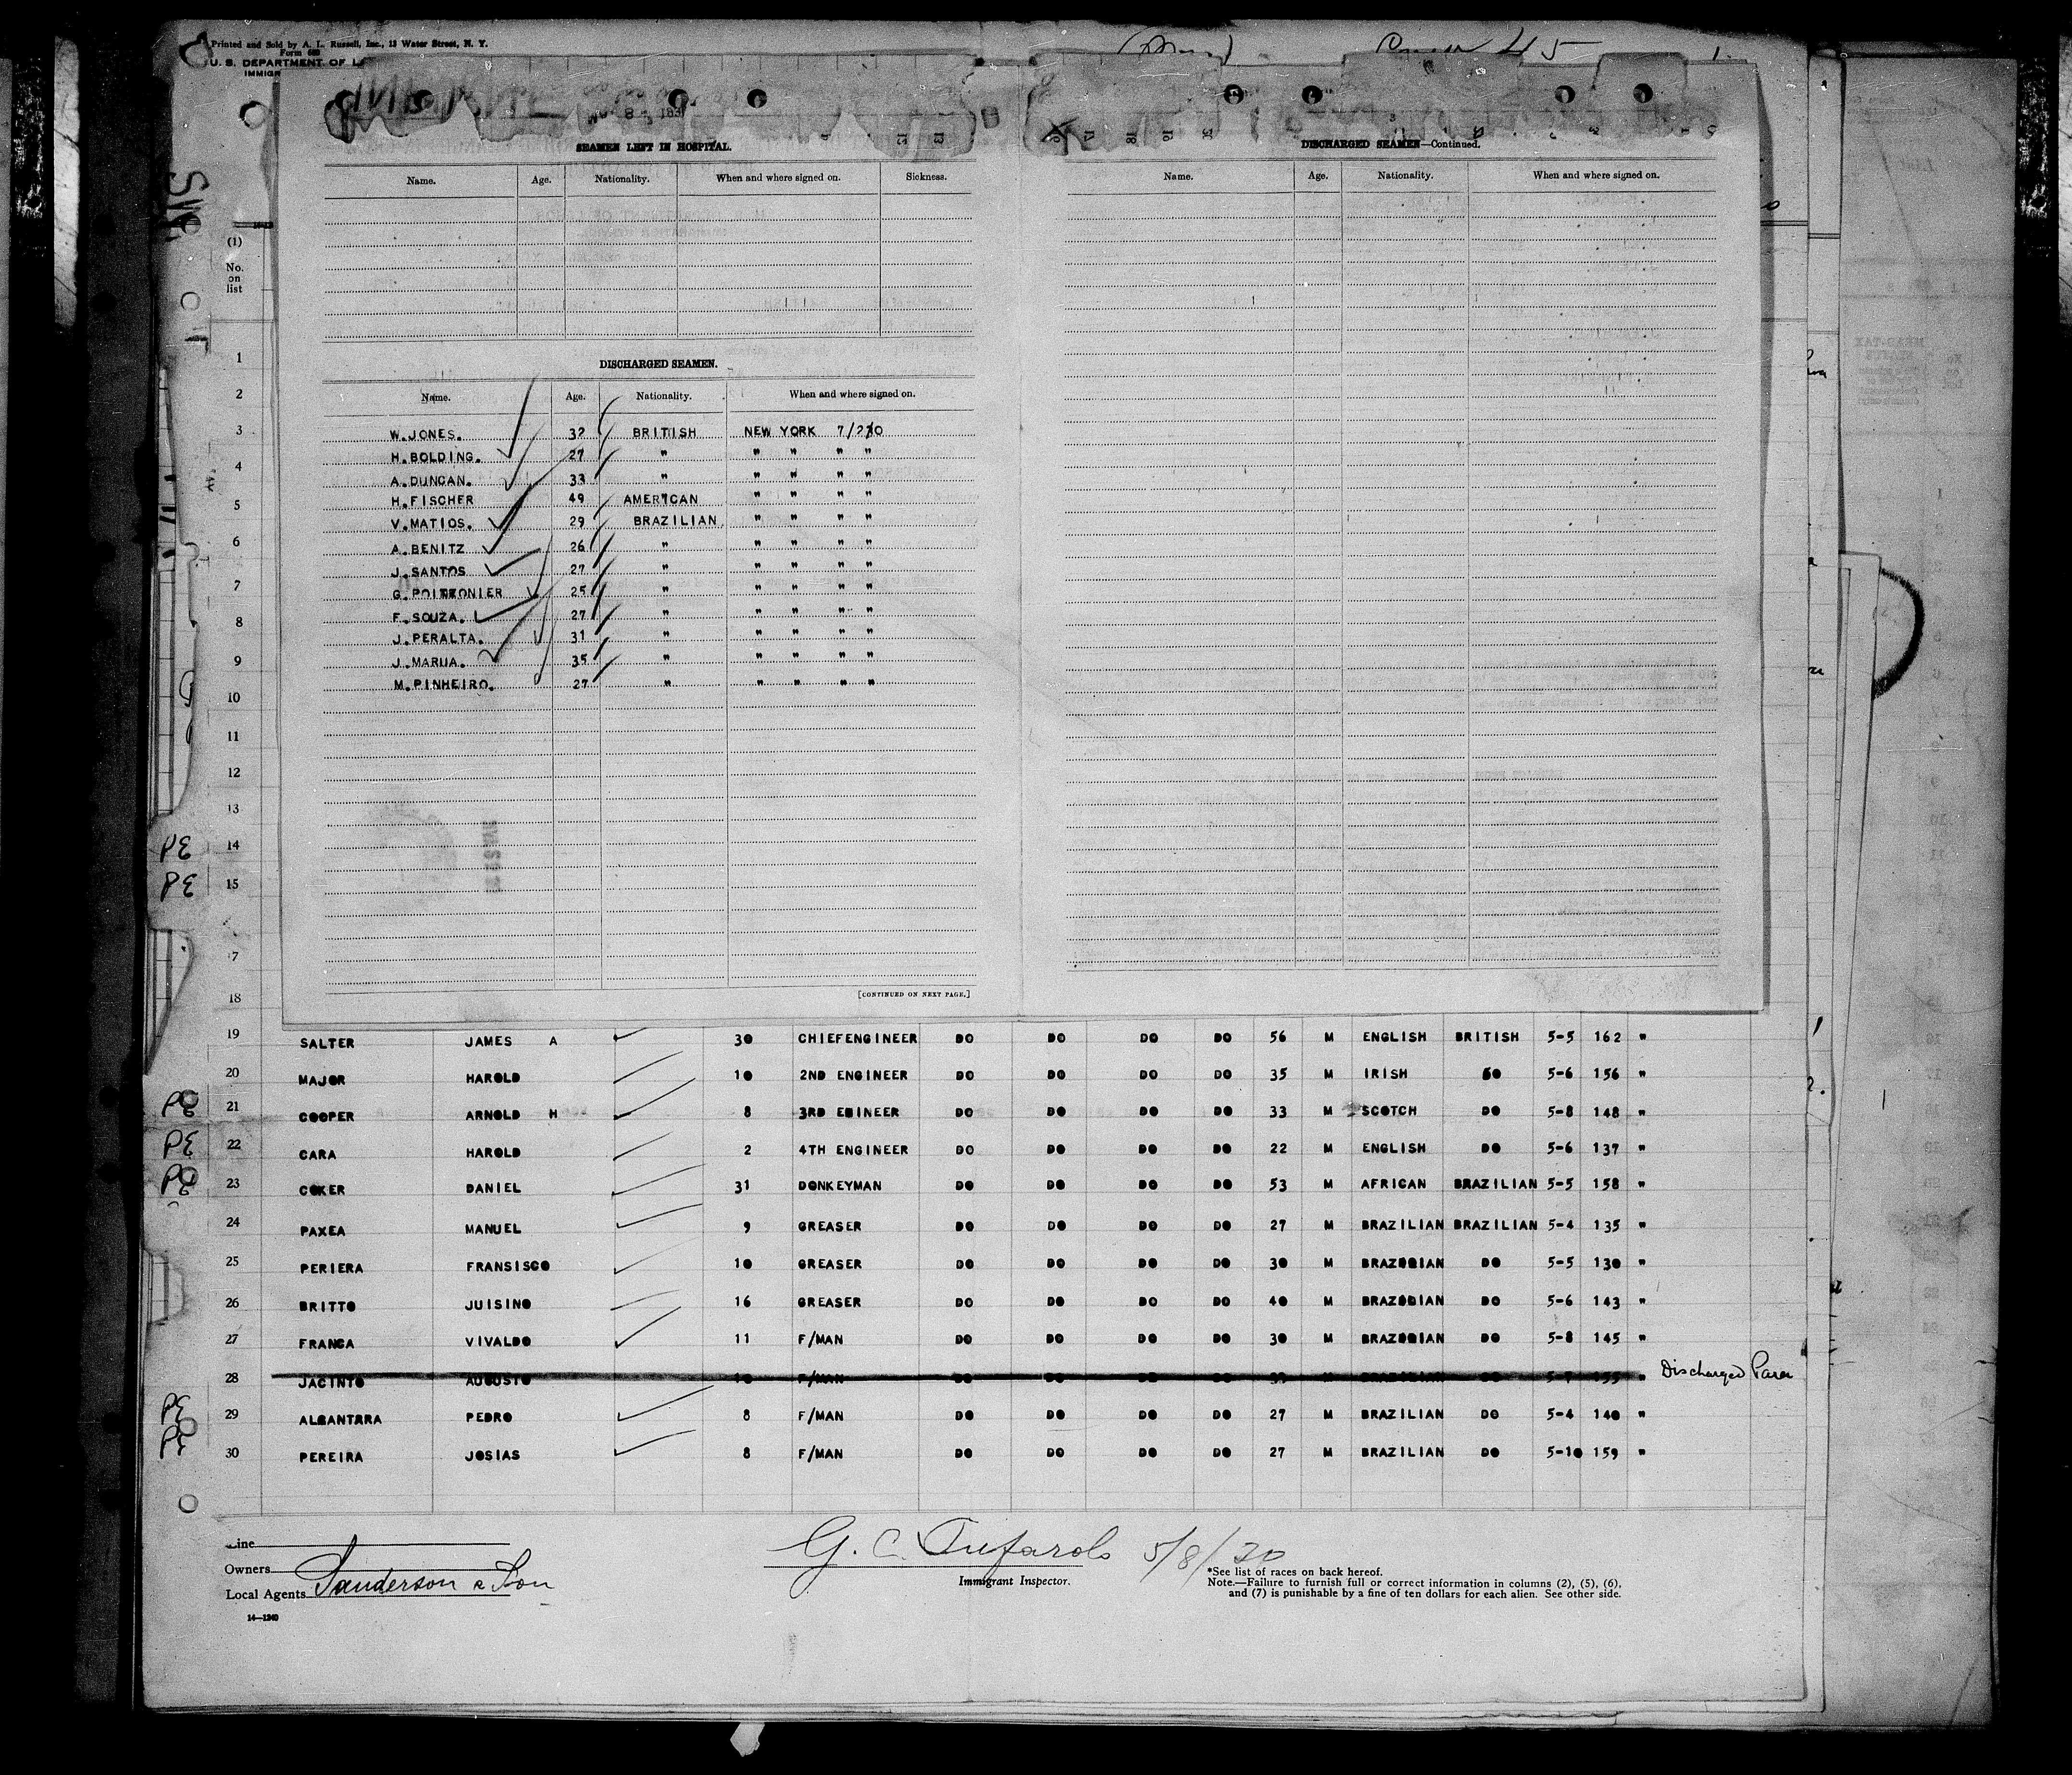 Printed and Sold by A. L. Russell, Inc., 13 Water Street, N. Y.
Form 680
U. S. DEPARTMENT OF
IMMIGR
SEAMEN LEFT IN HOSPITAL.
Name. Age. Nationality. When and where signed on. Sickness.
DISCHARGED SEAMEN.
Name. Age. Nationality. When and where signed on.
W.JONES. 32 BRITISH NEW YORK
H.BOLDING. 27 " " " " "
A.DUNCAN. 33 " " " " "
H.FISCHER 49 AMERICAN " " " "
V.MATIOS. 29 BRAZILIAN " " " "
A.BENITZ 26 " " " " "
J.SANTOS 27 " " " " "
25 " " " " "
F.SOUZA. 27 " " " " "
J.PERALTA. 31 " " " " "
J.MARUA. 35 " " " " "
M.PINHEIRO. 27 " " " " "
[CONTINUED ON NEXT PAGE.]
DISCHARGED SEAMEN—Continued.
Name. Age. Nationality. When and where signed on.
(1)
No.
on
list
1
2
3
4
5
6
7
8
9
10
11
12
13
PE 14
PE 15
7
18
19 SALTER JAMES A 30 CHIEFENGINEER DO DO DO DO 56 M ENGLISH BRITISH 5-5 162 "
20 MAJOR HAROLD 10 2ND ENGINEER DO DO DO DO 35 M IRISH DO 5-6 156 "
21 COOPER ARNOLD H 8 3RD EGINEER DO DO DO DO 33 M SCOTCH DO 5-8 148 "
PE 22 CARA HAROLD 2 4TH ENGINEER DO DO DO DO 22 M ENGLISH DO 5-6 137 "
23 COKER DANIEL 31 DONKEYMAN DO DO DO DO 53 M AFRICAN BRAZILIAN 5-5 158 "
24 PAXEA MANUEL 9 GREASER DO DO DO DO 27 M BRAZILIAN BRAZILIAN 5-4 135 "
25 PERIERA FRANSISCO 10 GREASER DO DO DO DO 30 M DO 5-5 130 "
26 BRITTO JUISINO 16 GREASER DO DO DO DO 40 M DO 5-6 143 "
27 FRANCA VIVALDO 11 F/MAN DO DO DO DO 30 M DO 5-8 145 "
28 JACINTO AUGUSTO 10 F/MAN DO DO DO DO M BRAZILIAN DO " Discharged Para
PE 29 ALCANTARA PEDRO 8 F/MAN DO DO DO DO 27 M BRAZILIAN DO 5-4 140 "
30 PEREIRA JOSIAS 8 F/MAN DO DO DO DO 27 M BRAZILIAN DO 5-10 159 "
Line
Owners
Local Agents Sanderson & Son
14—1240
G. C. Tufarolo 5/8/30
Immigrant Inspector.
*See list of races on back hereof.
Note.—Failure to furnish full or correct information in columns (2), (5), (6),
and (7) is punishable by a fine of ten dollars for each alien. See other side.